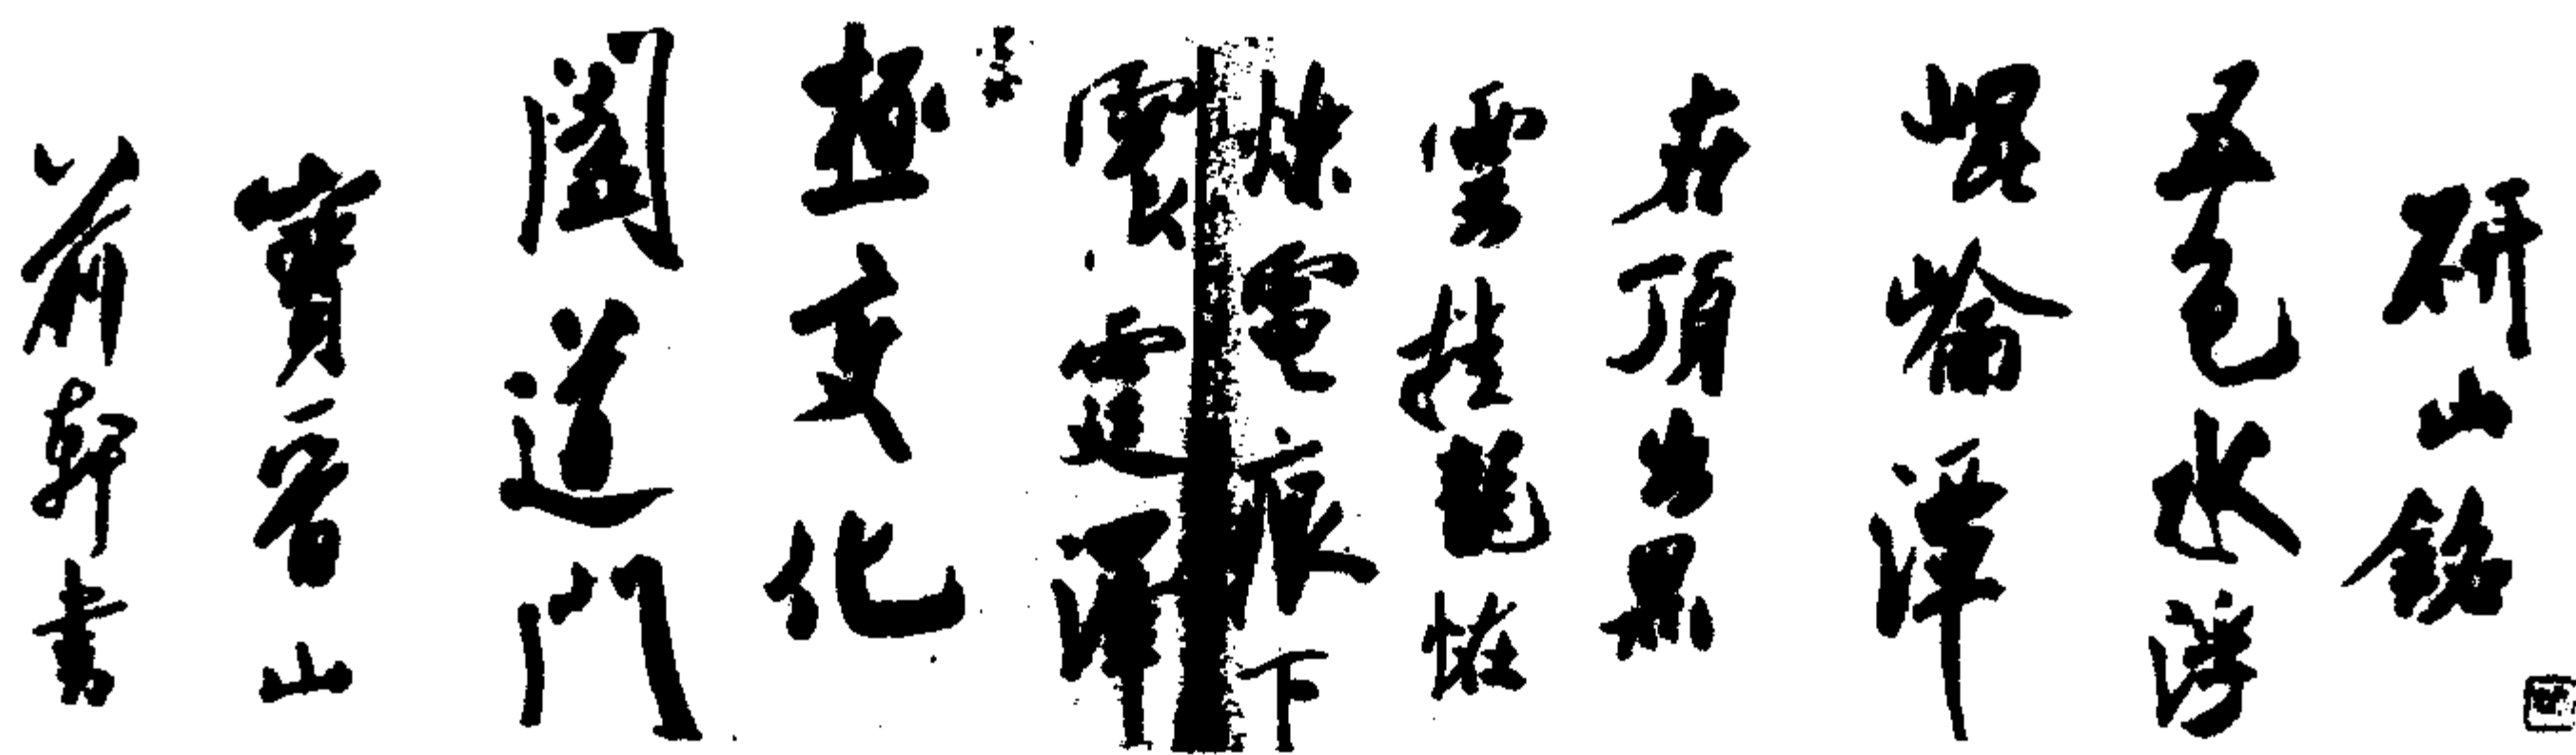 研山銘
五色水浮
崐崘潭
在頂出黑
雲挂龍恠
爍電痕下
震霆澤
極變化
闔道門
寶晉山
前軒書